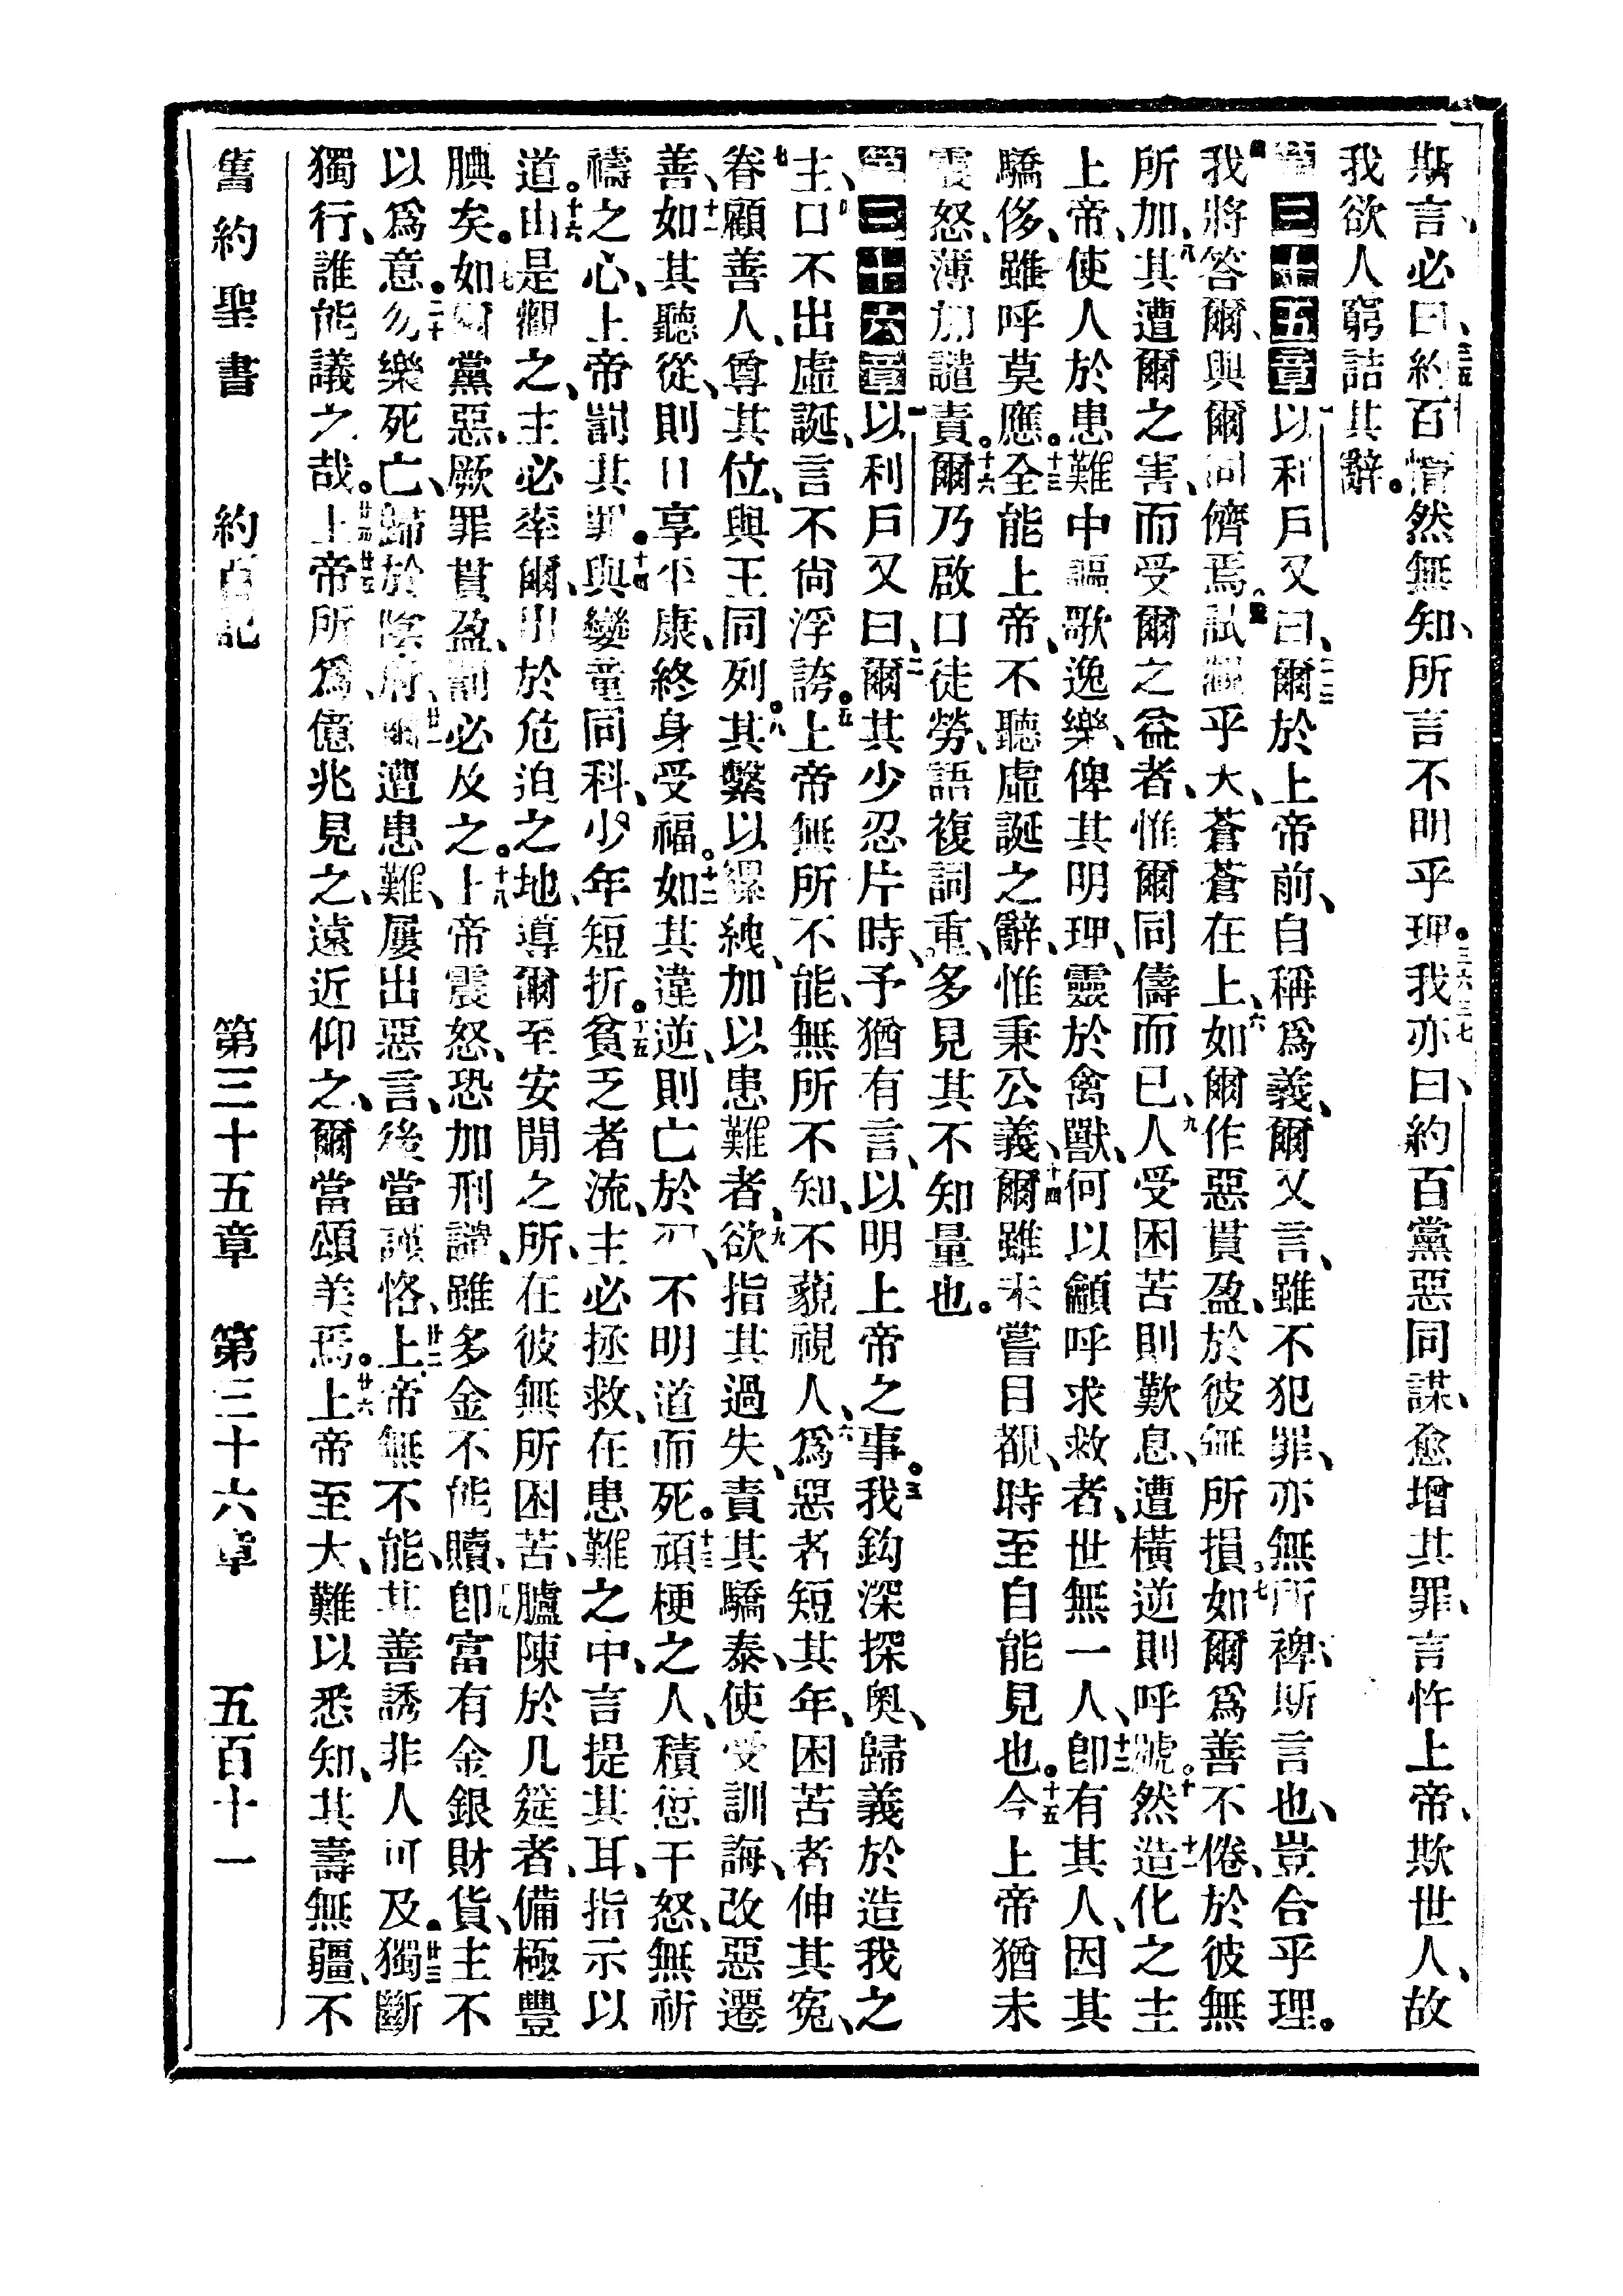 斯言、必曰、三五約百懵然無知、所言不明乎理。三六三七我亦曰、約百黨惡同謀、愈增其罪、言忤上帝、欺世人、故
我欲人窮詰其辭。
第三十五章一以利戶又曰、二三爾於上帝前、自稱爲義、爾又言、雖不犯罪、亦無所裨、斯言也、豈合乎理。
四我將答爾、與爾同儕焉。五試觀乎大、蒼蒼在上、六如爾作惡貫盈、於彼無所損、七如爾爲善不倦、於彼無
所加、八其遭爾之害、而受爾之益者、惟爾同儔而已、九人受困苦則歎息、遭橫逆則呼號。十然造十一化之主
上帝、使人於患難中謳歌逸樂、俾其明理、靈於禽獸、何以籲呼求救者、世無一人、十二卽有其人、因其
驕侈、雖呼莫應。十三全能上帝、不聽虛誕之辭、惟秉公義、十四爾雖未嘗目覩、時至自能見也。十五今上帝猶未
震怒、薄加譴責。十六爾乃啟口徒勞、語複詞重、多見其不知量也。
第三十六章一以利戶又曰、二爾其少忍片時、予猶有言、以明上帝之事。三我鈎深探奧、歸義於造我之
主、四口不出虛誕、言不尙浮誇。五上帝無所不能、無所不知、不藐視人、六爲惡者短其年、困苦者伸其寃、
七眷顧善人、尊其位、與王同列。八其繫以縲絏、加以患難者、九欲指其過失、責其驕泰、使受訓誨、改惡遷
善、十一如其聽從、則日享平康、終身受福。十二如其違逆、則亡於刃、不明道而死。十三頑梗之人、積愆干怒、無祈
禱之心、上帝罰其罪。十四與孌童同科、少年短折。十五貧乏者流、主必拯救、在患難之中、言提其耳、指示以
道。十六由是觀之、主必率爾、出於危迫之地、導爾至安閒之所、在彼無所困苦、臚陳於几筵者、備極豐
腆矣。十七如爾黨惡、厥罪貫盈、罰必及之。十八上帝震怒、恐加刑譴、雖多金不能贖、十九卽富有金銀財貨、主不
以爲意。二十勿樂死亡、歸於陰府、廿一爾遭患難、屢出惡言、後當謹恪、廿二上帝無不能、其善誘非人可及。廿三獨斷
獨行、誰能議之哉。廿四廿五上帝所爲、億兆見之、遠近仰之、爾當頌美焉。廿六上帝至大、難以悉知、其壽無疆、不
舊約聖書　約百記　第三十五章　第三十六章　五百十一